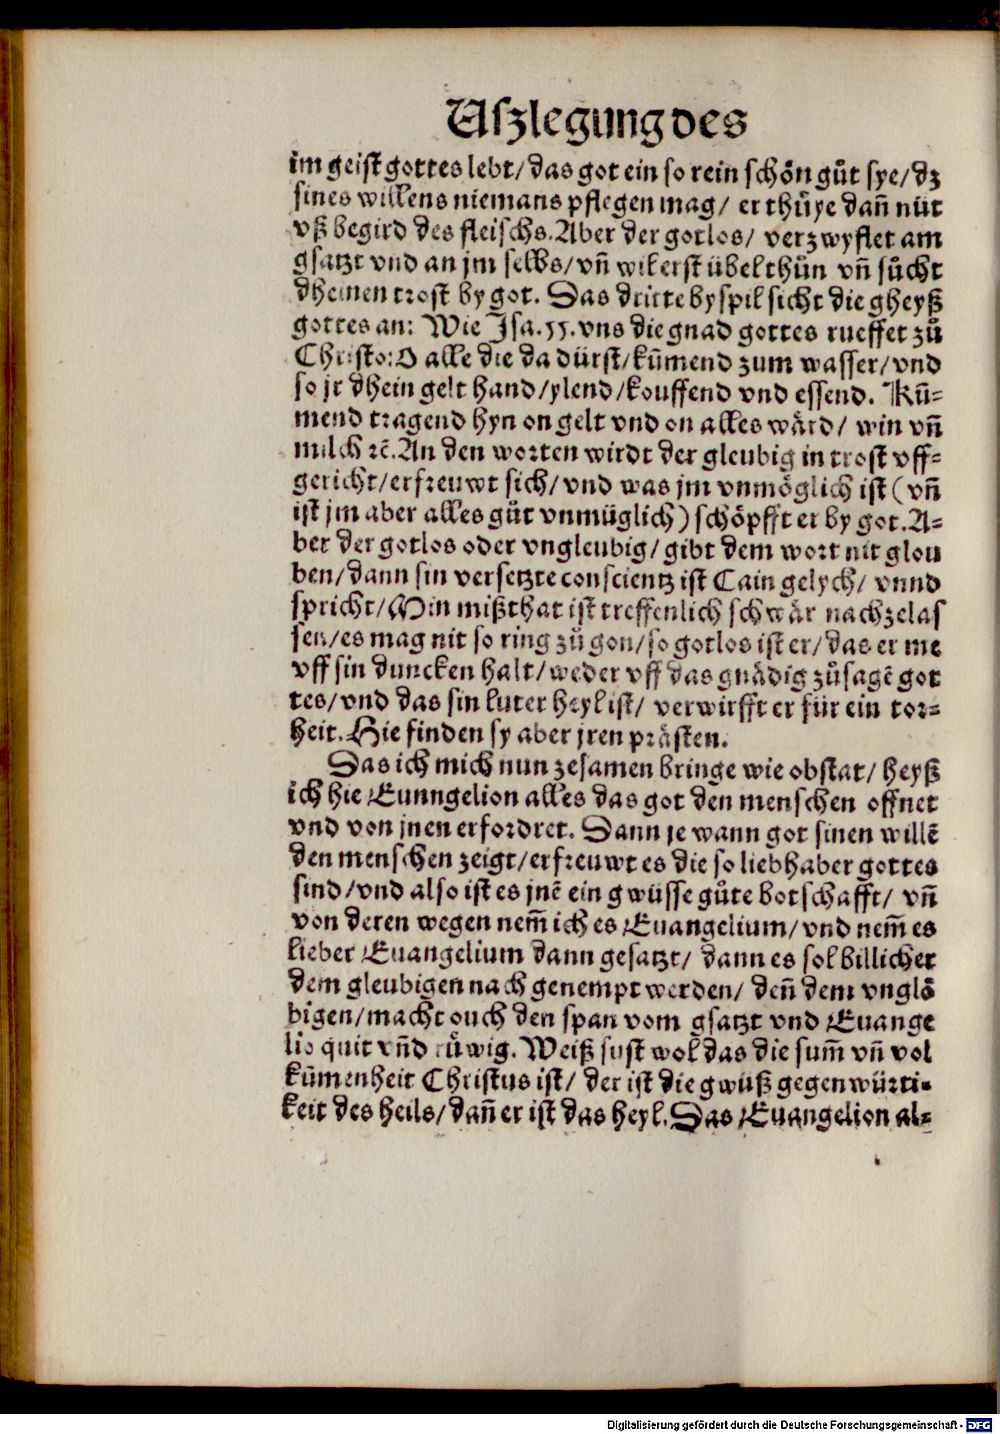 Uſzlegung des
im geiſt gottes lebt/ das got ein ſo rein ſchön gůt ſye/ dz
ſines willens niemans pflegen mag/ er thüye dañ nüt
vß begird des fleiſchs. Aber der gotlos/ verzwyflet am
gſatzt vnd an jm ſelbs/ vñ wil erſt übel thůn vñ ſůcht
dheinen troſt by got. Das dritte byſpil ſicht die gheyß
gottes an: Wie Iſa. 55. vns die gnad gottes rueffet zů
Chriſto: O alle die da dürſt/ kům̄end zum waſſer/ vnd
ſo jr dhein gelt hand/ ylend/ kouffend vnd eſſend. Kū-
mend tragend hyn on gelt vnd on alles wärd/ win vñ
milch ꝛc̄. An den worten wirdt der gleubig in troſt vff-
gericht/ erfreuwt ſich/ vnd was jm vnmöglich iſt (vñ
iſt jm aber alles gůt vnmüglich) ſchöpfft er by got. A-
ber der gotlos oder vngleubig/ gibt dem wort nit glou
ben/ dann ſin verſetzte conſcientz iſt Cain gelych/ vnnd
ſpricht/ Min mißthat iſt treffenlich ſchwär nachzelaſ
ſen/ es mag nit ſo ring zů gon/ ſo gotlos iſt er/ das er me
vff ſin duncken halt/ weder vff das gnädig zůſagē got
tes/ vnd das ſin luter heyl iſt/ verwirfft er für ein tor-
heit. Hie finden ſy aber jren präſten.
Das ich mich nun zeſamen bringe wie obſtat/ heyß
ich hie Eunngelion alles das got den menſchen offnet
vnd von jnen erfordret. Dann je wann got ſinen willē
den menſchen zeigt/ erfreuwt es die ſo liebhaber gottes
ſind/ vnd alſo iſt es jnē ein gwüſſe gůte botſchafft/ vñ
von deren wegen nem̄ ich es Euangelium/ vnd nem̄ es
lieber Euangelium dann geſatzt/ dann es ſol billicher
dem gleubigen nach genempt werden/ deñ dem vnglö
bigen/ macht ouch den ſpan vom gſatzt vnd Euange
lio quit vñd rüwig. Weiß ſuſt wol das die ſum̄ vñ vol
kūmenheit Chriſtus iſt/ der iſt die gwüß gegenwürti-
keit des heils/ dañ er iſt das heyl. Das Euangelion al-
Digitalisierung gefördert durch die Deutsche Forschungsgemeinschaft - DFG